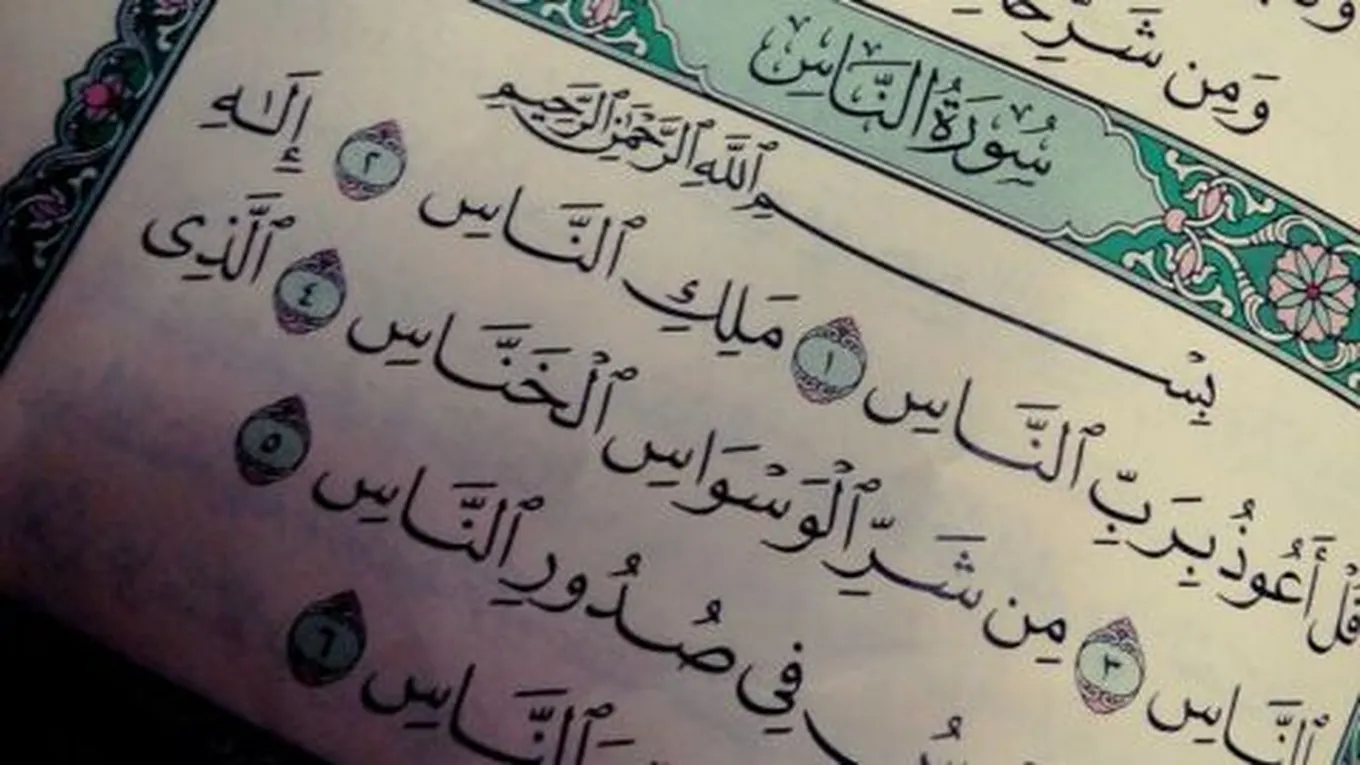 وَمِن شَرِّ
سُورَةُ النَّاسِ
بِسْمِ ٱللَّهِ ٱلرَّحْمَٰنِ ٱلرَّحِيمِ
قُلْ أَعُوذُ بِرَبِّ ٱلنَّاسِ ١ مَلِكِ ٱلنَّاسِ ٢ إِلَٰهِ
ٱلنَّاسِ ٣ مِن شَرِّ ٱلْوَسْوَاسِ ٱلْخَنَّاسِ ٤ ٱلَّذِى
فِي صُدُورِ ٱلنَّاسِ ٥
ٱلنَّاسِ ٦